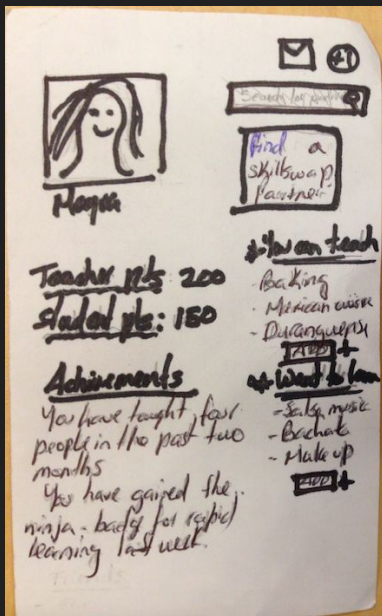 +1
Search for partner
Find a
skillswap
partner
Mayra
Teacher pts: 200
Student pts: 150
Achirements
You have taught four
people in the past two
months
You have gained the
ninja-badge for rapid
learning last week.
Friends
*You can teach
- Baking
- Mexican cuisine
- Duranguense
ADD +
* Want to learn
- Salsa music
- Bachata
- Make up
ADD +